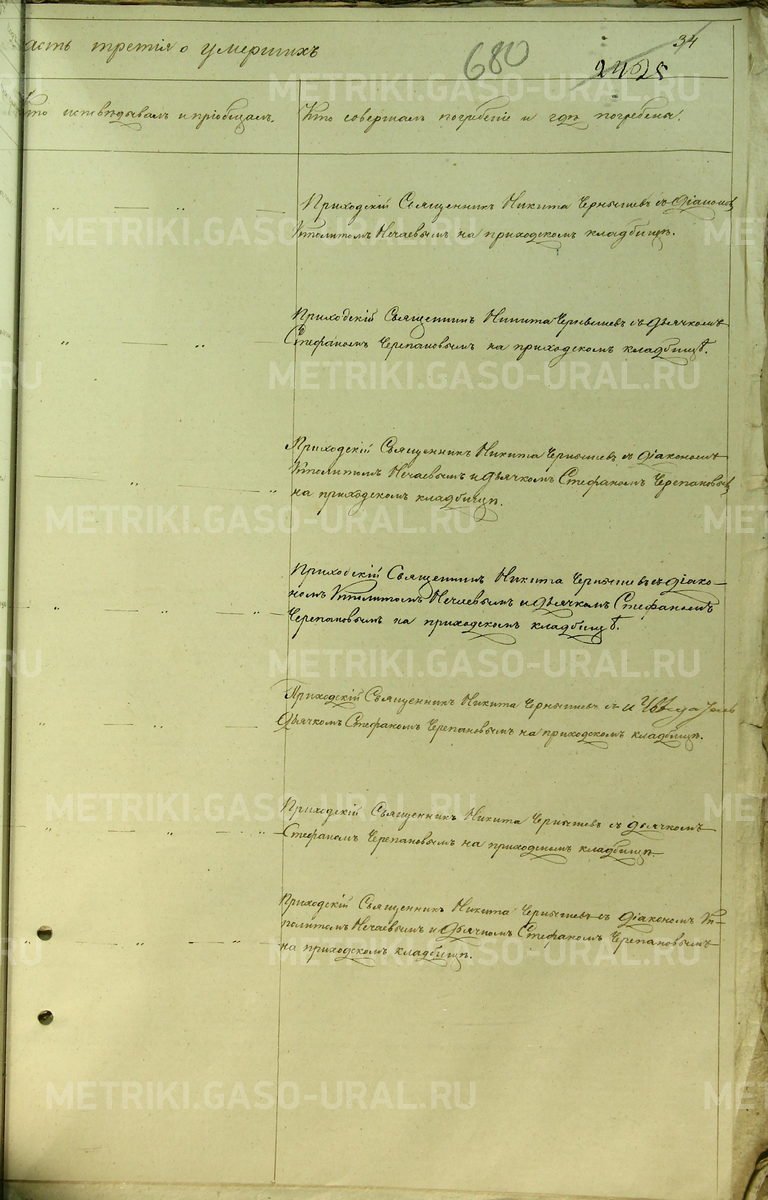 асть третiя о умершихъ
680
34
2425
METRIKI.GASO-URAL.RU
Кто исповѣдывалъ и прiобщалъ.
Кто совершалъ погребенiе и гдѣ погребены.
Приходскiй Священникъ Никита Чернышев съ Дiакономъ
Ипполитомъ Нечаевымъ на приходскомъ кладбищѣ.
METRIKI.GASO-URAL.RU
Приходскiй Священникъ Никита Чернышев съ дьячкомъ
Стефаномъ Черепановымъ на приходскомъ кладбищѣ.
METRIKI.GASO-URAL.RU
Приходскiй Священникъ Никита Чернышев съ дiакономъ
Ипполитомъ Нечаевымъ и дьячкомъ Стефаномъ Черепановымъ
на приходскомъ кладбищѣ.
METRIKI.GASO-URAL.RU
Приходскiй Священникъ Никита Чернышевъ съ дiако-
номъ Ипполитомъ Нечаевымъ и дьячкомъ Стефаномъ
Черепановымъ на приходскомъ кладбищѣ.
METRIKI.GASO-URAL.RU
Приходскiй Священникъ Никита Чернышевъ съ
Дьячкомъ Стефаномъ Черепановымъ на приходскомъ кладбищѣ.
METRIKI.GASO-URAL.RU
Приходскiй Священникъ Никита Чернышевъ съ дьячкомъ
Стефаномъ Черепановымъ на приходскомъ кладбищѣ.
Приходскiй Священникъ Никита Чернышевъ съ Дiакономъ Ип-
политомъ Нечаевымъ и Дьячкомъ Стефаномъ Черепановымъ
на приходскомъ кладбищѣ.
METRIKI.GASO-URAL.RU
METRIKI.GASO-URAL.RU